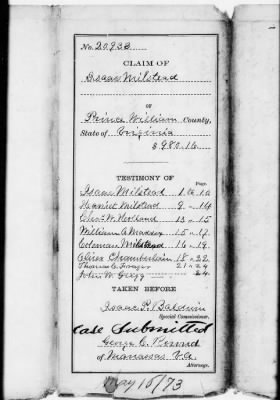 No. 20933
CLAIM OF
Isaac Milstead
OF
Prince William County,
State of Virginia
$ 980.16
TESTIMONY OF
Page.
Isaac Milstead 1 to 10
Harriet Milstead 9 " 14
Chas. W. Holland 13 " 15
William A. 15 " 17
Coleman Milstead 16 " 19
Chamberlain 18 " 22
Thomas C. 21 " 24
John W. Gregg 24
TAKEN BEFORE
Isaac P. Baldwin
Special Commissioner.
Case Submitted
George C. Round
of Manassas Va
Attorney.
May 15/73